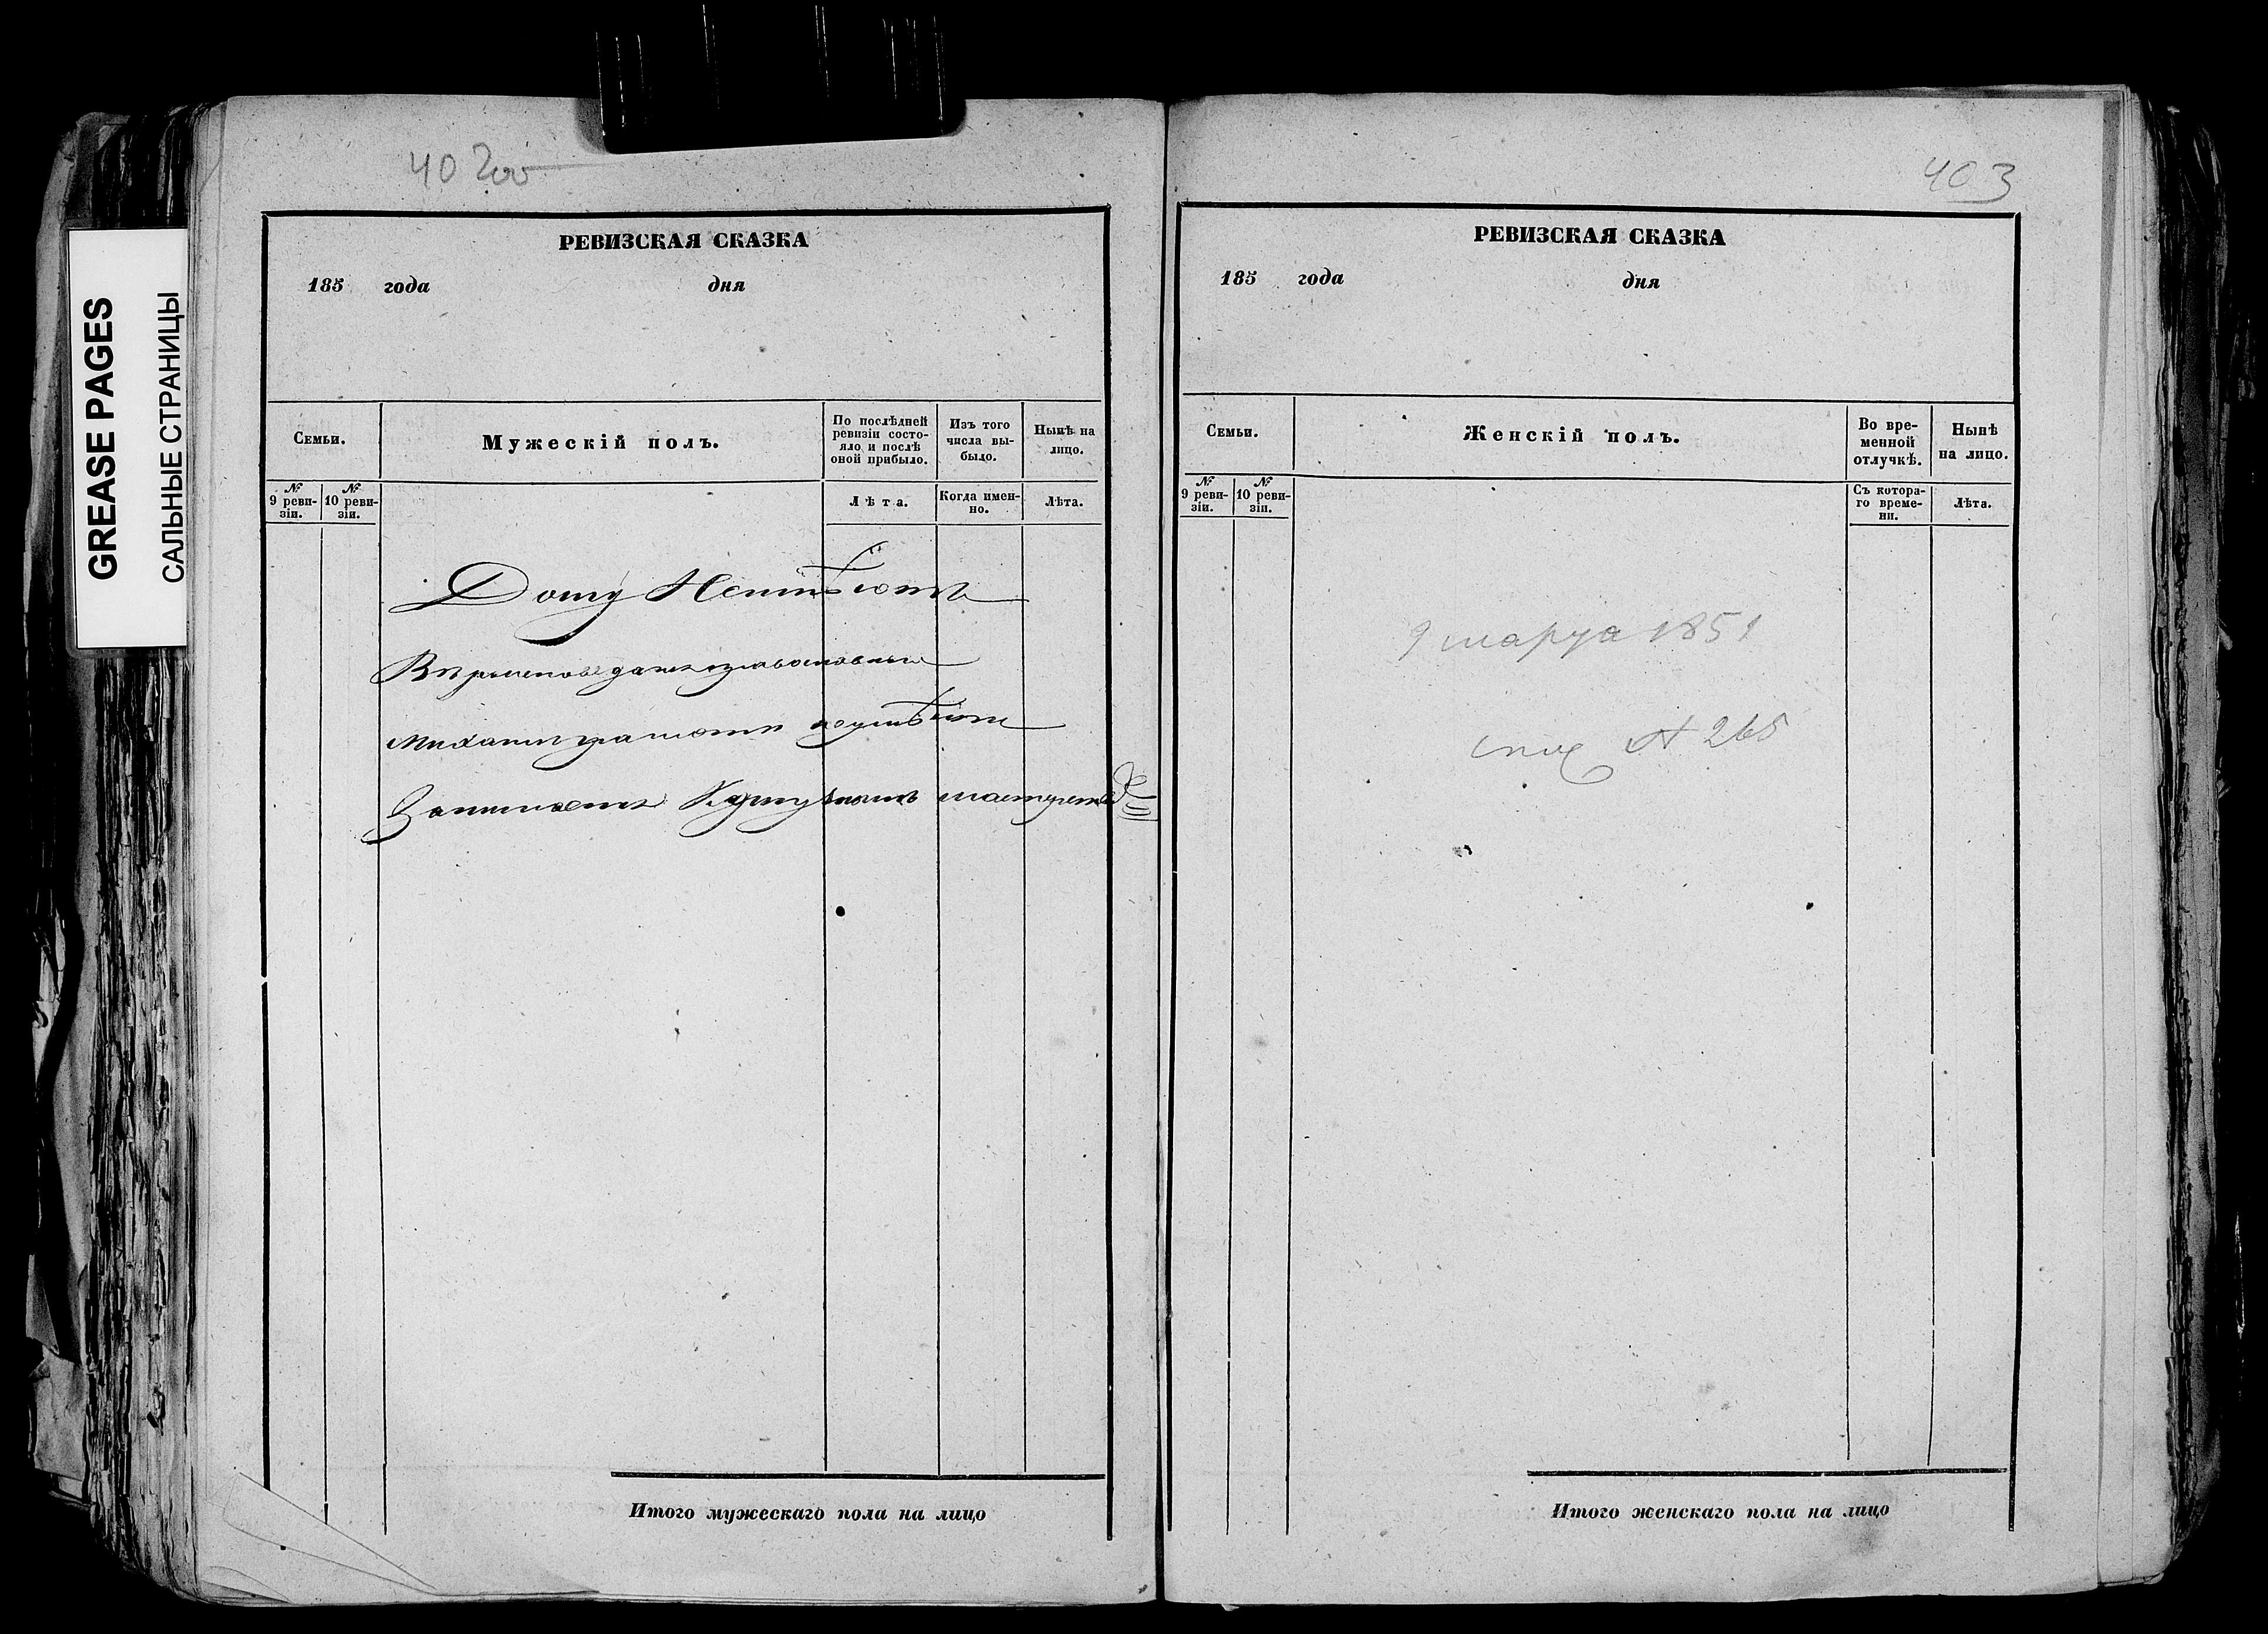 GREASE PAGES
САЛЬНЫЕ СТРАНИЦЫ
40 2об
РЕВИЗСКАЯ СКАЗКА
185 года дня
Семьи.
Мужескій полъ.
По послѣдней ревизіи состояло и послѣ оной прибыло.
Изъ того числа выбыло.
Нынѣ на лицо.
№ 9 ревизіи.
№ 10 ревизіи.
Лѣта.
Когда именно.
Лѣта.
Вѣроисповеданія православнаго
Занимается мастерств
Итого мужескаго пола на лицо
403
РЕВИЗСКАЯ СКАЗКА
185 года дня
Семьи.
Женскій полъ.
Во временной отлучкѣ.
Нынѣ на лицо.
№ 9 ревизіи.
№ 10 ревизіи.
Съ котораго времени.
Лѣта.
9 марта 1851
№ 265
Итого женскаго пола на лицо